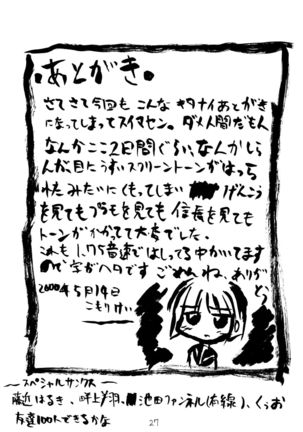 。あとがき。
さてさて今回も こんな キタナイあとがき
になってしまってスイマセン。 ダメ人間だもん
なんかここ2日間ぐらい、なんかしら
んが目にうすいスクリーントーンがはっら
れたみたいにくもってしまい げんこう
を見てもプラモを見ても 信長を見ても
トーンがかかってて大変でした。
これも 1.75音速ではしってる中かいてます
ので字がヘタです ごめんね、ありがとう
2000年5月14日
こもりけい
〜スペシャルサンクス〜
はるき、 池田ファンネル(赤線)、くぅお
友達100人できるかな
27